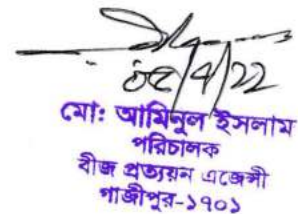 মো: আমিনুল ইসলাম
পরিচালক
বীজ প্রত্যয়ন এজেন্সী
গাজীপুর-১৭০১